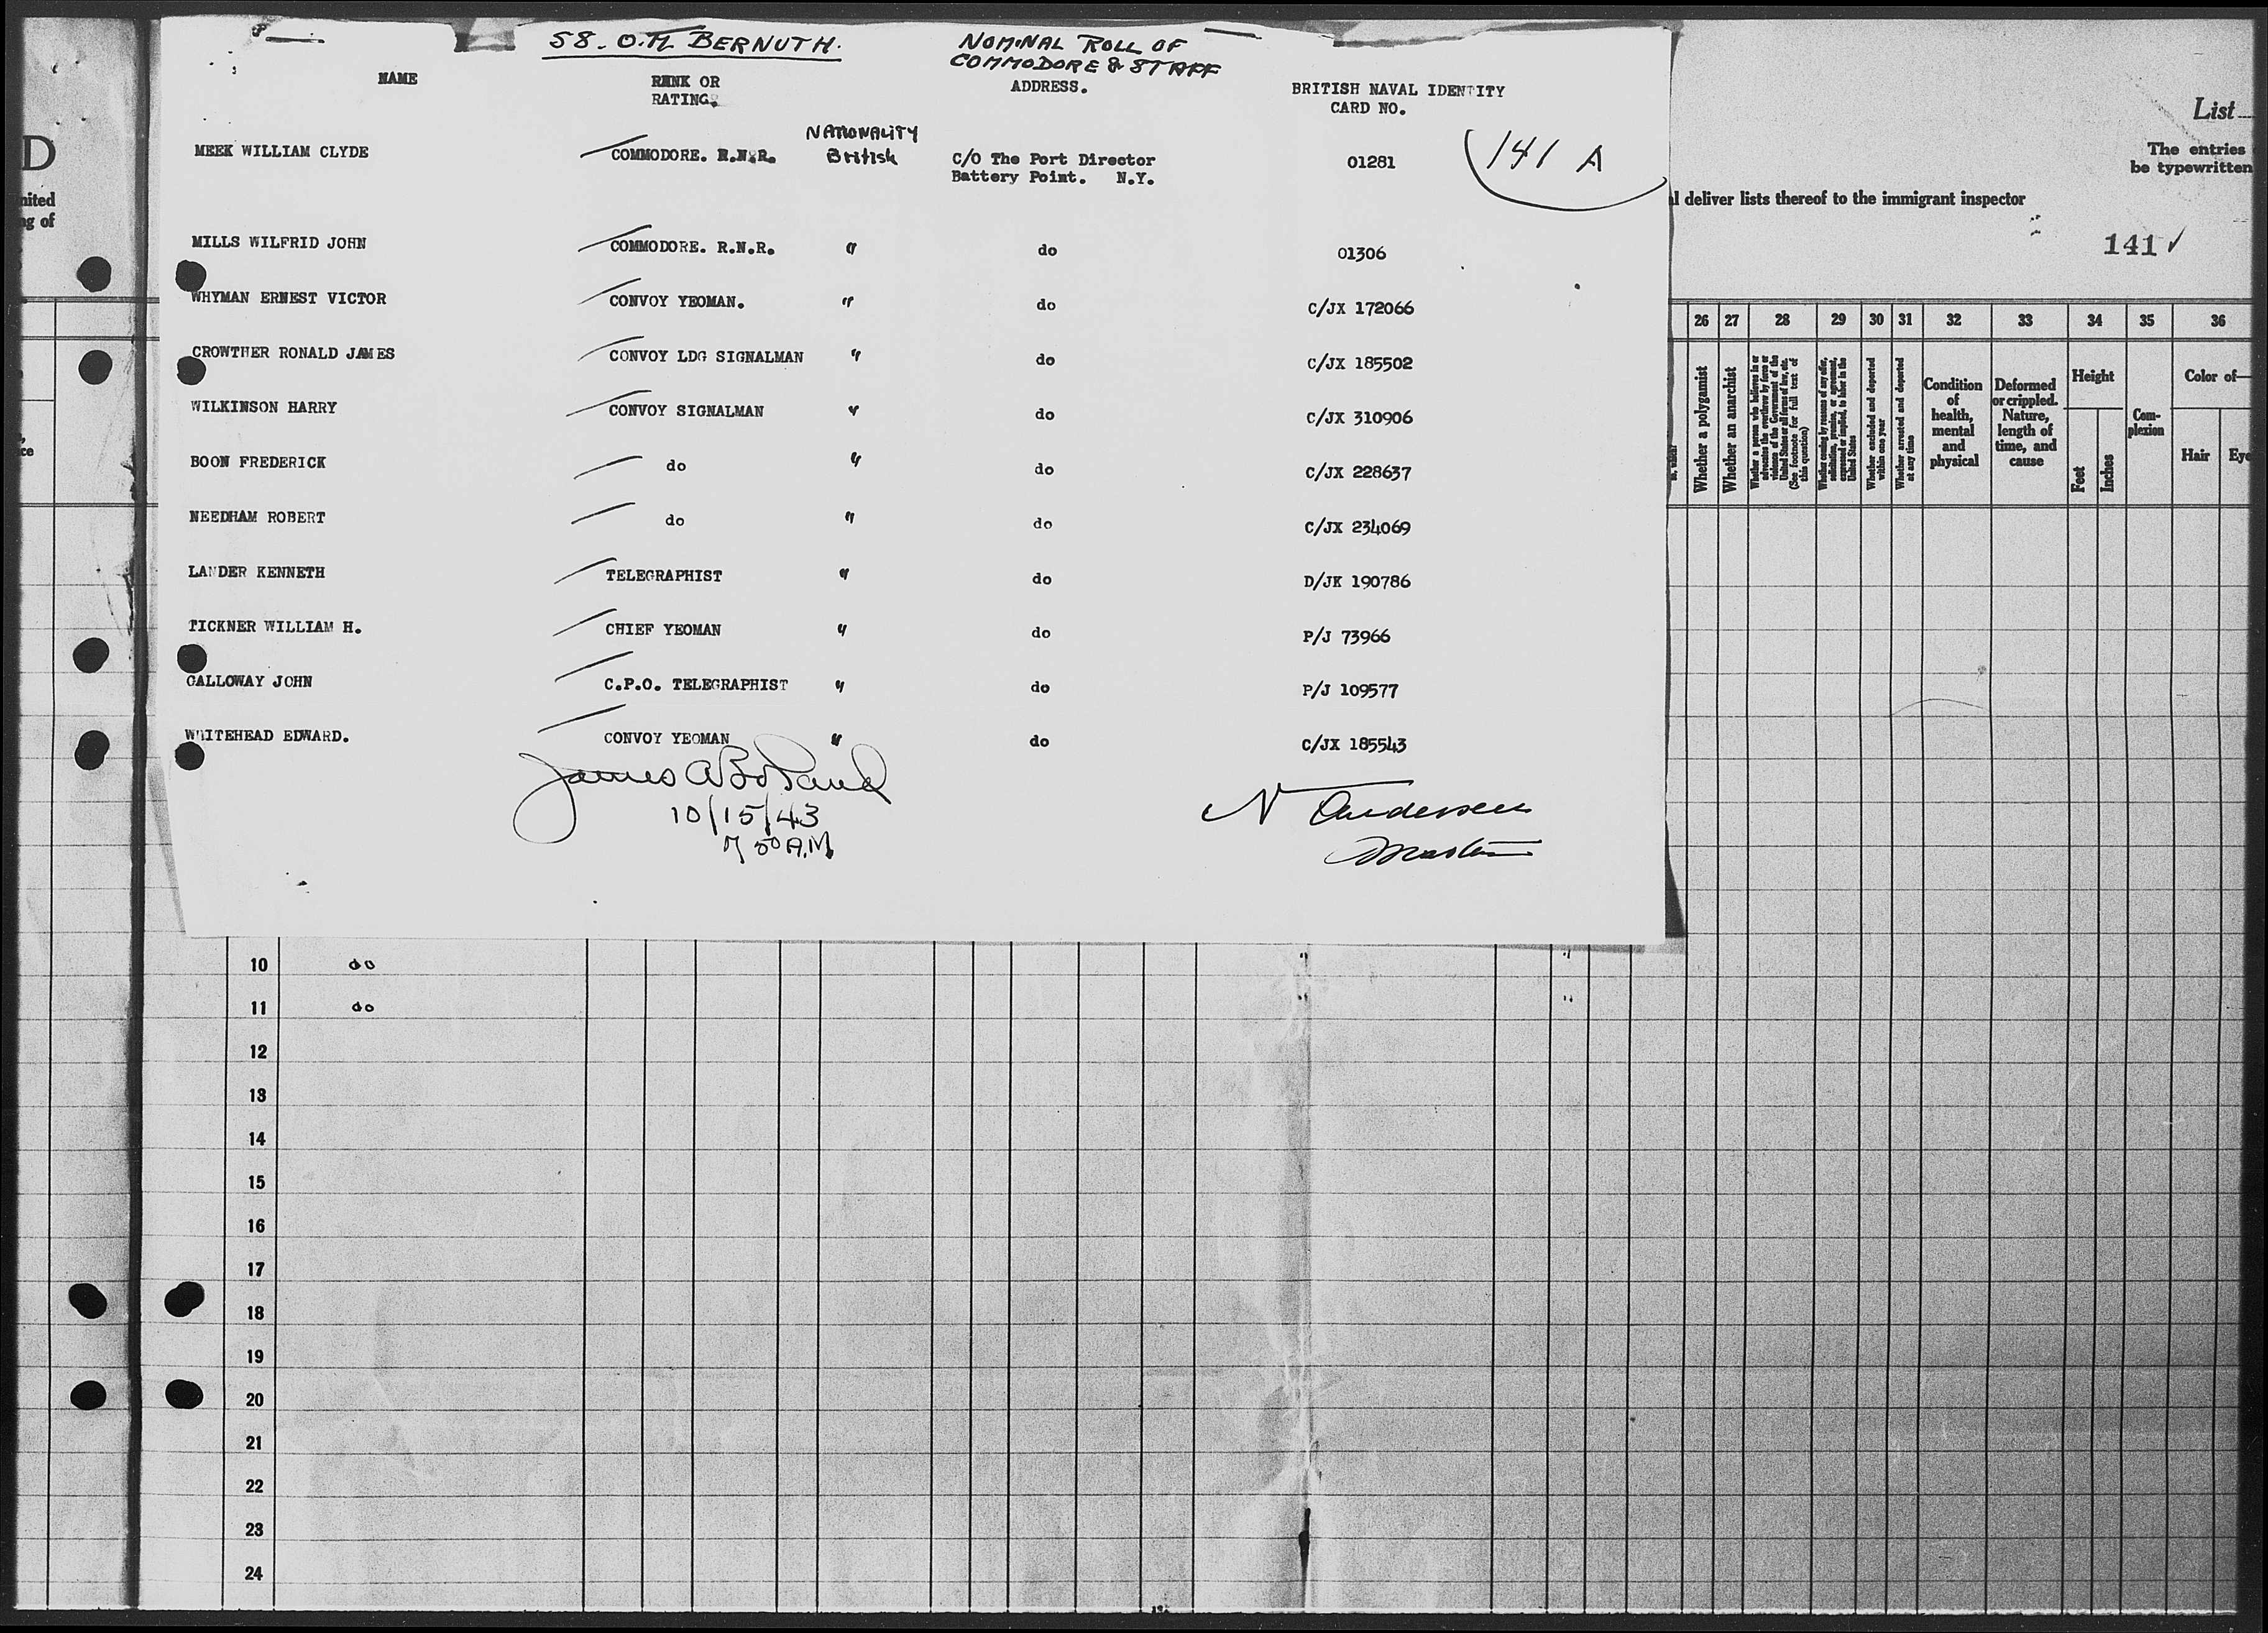 S8. O.H. BERNUTH. NOMINAL ROLL OF
COMMODORE & STAFF
NAME RENK OR RATING. ADDRESS. BRITISH NAVAL IDENTITY CARD NO.
NATIONALITY
MEEK WILLIAM CLYDE COMMODORE. R.N.R. British C/O The Port Director Battery Point. N.Y. 01281
141 A
MILLS WILFRID JOHN COMMODORE. R.N.R. " do 01306
WHYMAN ERNEST VICTOR CONVOY YEOMAN. " do C/JX 172066
CROWTHER RONALD JAMES CONVOY LDG SIGNALMAN " do C/JX 185502
WILKINSON HARRY CONVOY SIGNALMAN " do C/JX 310906
BOON FREDERICK do " do C/JX 228637
NEEDHAM ROBERT do " do C/JX 234069
LANDER KENNETH TELEGRAPHIST " do D/JK 190786
TICKNER WILLIAM H. CHIEF YEOMAN " do P/J 73966
GALLOWAY JOHN C.P.O. TELEGRAPHIST " do P/J 109577
WHITEHEAD EDWARD. CONVOY YEOMAN " do C/JX 185543
James A Boland
10/15/43
7 50 A.M.
N Andersen
Master
D
nited
ng of
List
The entries
be typewritten
deliver lists thereof to the immigrant inspector
141 ✓
26 27 28 29 30 31 32 33 34 35 36
Whether a polygamist
Whether an anarchist
Whether a person who believes in or advocates the overthrow by force or violence of the Government of the United States or all forms of law, etc. (See footnote for full text of this question)
Whether coming by reasons of any offer, solicitation, promise, or agreement, expressed or implied, to labor in the United States
Whether excluded and deported within one year
Whether arrested and deported at any time
Condition of health, mental and physical
Deformed or crippled. Nature, length of time, and cause
Height
Feet
Inches
Com-
plexion
Color of—
Hair
Eye
10 do " "
11 do " "
12
13
14
15
16
17
18
19
20
21
22
23
24